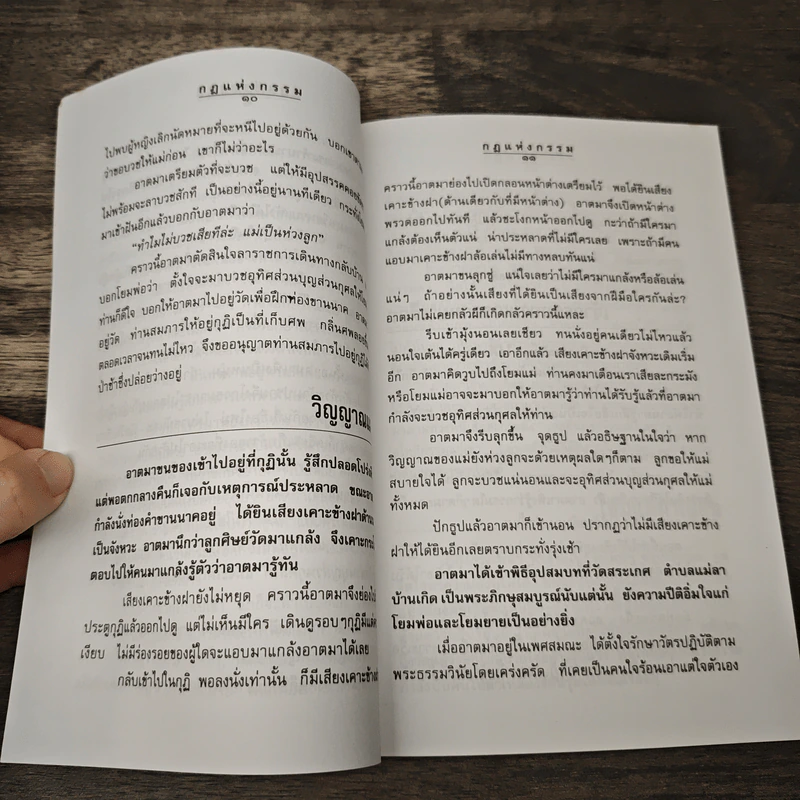 กฏแห่งกรรม
๑๐
ไปพบผู้หญิงเลิกนัดหมายที่จะหนีไปอยู่ด้วยกัน บอกเขา
ว่าขอบวชให้แม่ก่อน เขาก็ไม่ว่าอะไร
อาตมาเตรียมตัวที่จะบวช แต่ให้มีอุปสรรค
ไม่พร้อมจะลาบวชสักที เป็นอย่างนี้อยู่นานทีเดียว
มาเข้าฝันอีกแล้วบอกกับอาตมาว่า
"ทำไมไม่บวชเสียทีล่ะ แม่เป็นห่วงลูก"
คราวนี้อาตมาตัดสินใจลาราชการเดินทางกลับบ้าน
บอกโยมพ่อว่า ตั้งใจจะมาบวชอุทิศส่วนบุญส่วนกุศลให้
ท่านก็ดีใจ บอกให้อาตมาไปอยู่วัดเพื่อฝึกท่องขานนาค
อยู่วัด ท่านสมภารให้อยู่กุฏิเป็นที่เก็บศพ กลิ่นศพ
ตลอดเวลาจนทนไม่ไหว จึงขออนุญาตท่านสมภารไปอยู่
ป่าช้าซึ่งปล่อยว่างอยู่
อาตมาขนของเข้าไปอยู่ที่กุฏินั้น รู้สึกปลอดโปร่ง
แต่พอตกกลางคืนก็เจอกับเหตุการณ์ประหลาด ขณะ
กำลังนั่งท่องคำขานนาคอยู่ ได้ยินเสียงเคาะข้างฝา
เป็นจังหวะ อาตมานึกว่าลูกศิษย์วัดมาแกล้ง จึงเคาะ
ตอบไปให้คนมาแกล้งรู้ตัวว่าอาตมารู้ทัน
เสียงเคาะข้างฝายังไม่หยุด คราวนี้อาตมาจึงย่อง
ประตูกุฏิแล้วออกไปดู แต่ไม่เห็นมีใคร เดินดูรอบๆกุฏิ
เงียบ ไม่มีร่องรอยของผู้ใดจะแอบมาแกล้งอาตมาได้เลย
กลับเข้าไปในกุฏิ พอลงนั่งเท่านั้น ก็มีเสียงเคาะ
กฏแห่งกรรม
๑๑
คราวนี้อาตมาย่องไปเปิดกลอนหน้าต่างเตรียมไว้ พอได้ยินเสียง
เคาะข้างฝา(ด้านเดียวกับที่มีหน้าต่าง) อาตมาจึงเปิดหน้าต่าง
พรวดออกไปทันที แล้วชะโงกหน้าออกไปดู กะว่าถ้ามีใครมา
แกล้งต้องเห็นตัวแน่ น่าประหลาดที่ไม่มีใครเลย เพราะถ้ามีคน
แอบมาเคาะข้างฝาล้อเล่นไม่มีทางหลบทันแน่
อาตมาขนลุกซู่ แน่ใจเลยว่าไม่มีใครมาแกล้งหรือล้อเล่น
แน่ๆ ถ้าอย่างนั้นเสียงที่ได้ยินเป็นเสียงจากฝีมือใครกันล่ะ?
อาตมาไม่เคยกลัวผีก็เกิดกลัวคราวนี้แหละ
รีบเข้ามุ้งนอนเลยเชียว ทนนั่งอยู่คนเดียวไม่ไหวแล้ว
นอนใจเต้นได้ครู่เดียว เอาอีกแล้ว เสียงเคาะข้างฝาจังหวะเดิมเริ่ม
อีก อาตมาคิดวูบไปถึงโยมแม่ ท่านคงมาเตือนเราเสียละกระมัง
หรือโยมแม่อาจจะมาบอกให้อาตมารู้ว่าท่านได้รับรู้แล้วที่อาตมา
กำลังจะบวชอุทิศส่วนกุศลให้ท่าน
อาตมาจึงรีบลุกขึ้น จุดธูป แล้วอธิษฐานในใจว่า หาก
วิญญาณของแม่ยังห่วงลูกจะด้วยเหตุผลใดๆก็ตาม ลูกขอให้แม่
สบายใจได้ ลูกจะบวชแน่นอนและจะอุทิศส่วนบุญส่วนกุศลให้แม่
ทั้งหมด
ปักธูปแล้วอาตมาก็เข้านอน ปรากฏว่าไม่มีเสียงเคาะข้าง
ฝาให้ได้ยินอีกเลยตราบกระทั่งรุ่งเช้า
อาตมาได้เข้าพิธีอุปสมบทที่วัดสระเกศ ตำบลแม่ลา
บ้านเกิด เป็นพระภิกษุสมบูรณ์นับแต่นั้น ยังความปีติอิ่มใจแก่
โยมพ่อและโยมยายเป็นอย่างยิ่ง
เมื่ออาตมาอยู่ในเพศสมณะ ได้ตั้งใจรักษาวัตรปฏิบัติตาม
พระธรรมวินัยโดยเคร่งครัด ที่เคยเป็นคนใจร้อนเอาแต่ใจตัวเอง